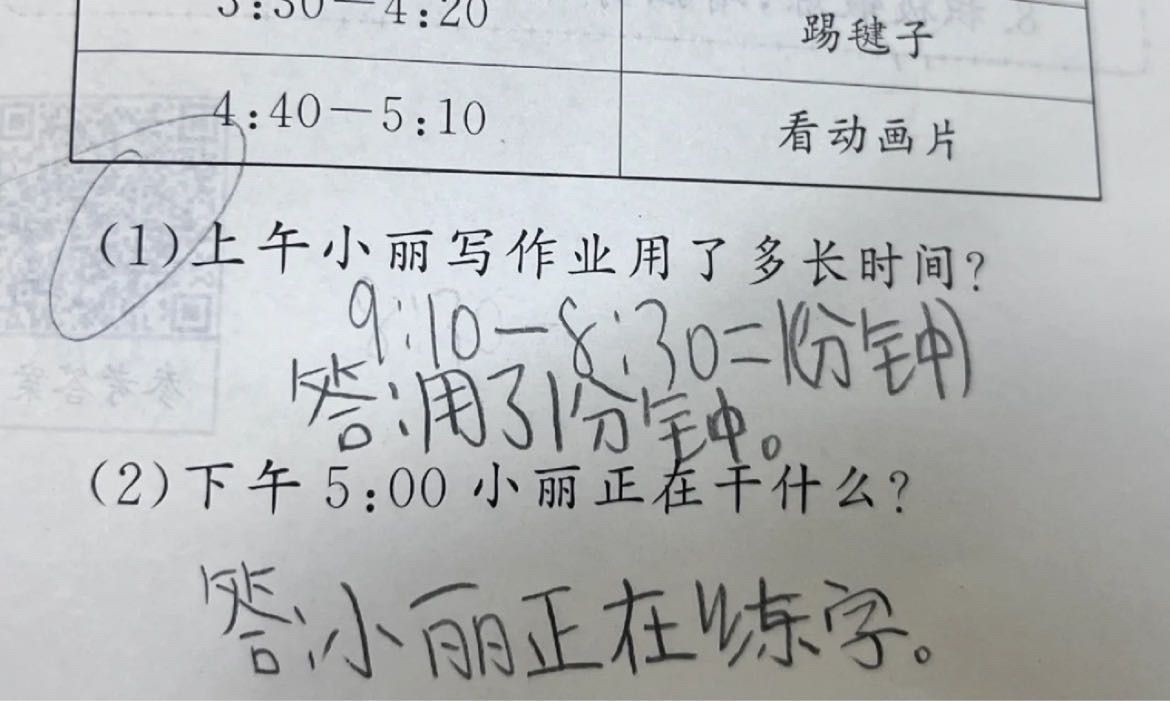 3:30—4:20 踢毽子
4:40—5:10 看动画片
(1)上午小丽写作业用了多长时间?
9:10-8:30=1(分钟)
答:用了1分钟。
(2)下午 5:00 小丽正在干什么?
答:小丽正在练字。
参考答案